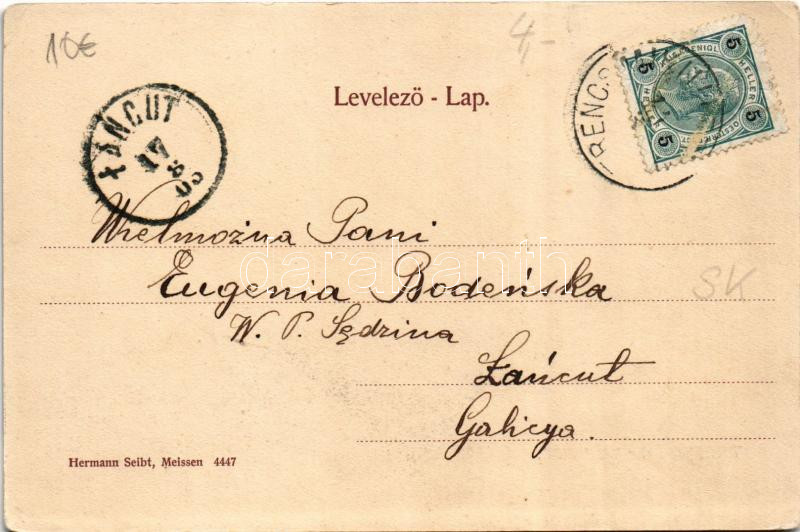 10€
4,-
Levelezö - Lap.
ŁAŃCUT
17
8
03
5 5
HELLER
5 5
Wielmożna Pani
Eugenia Bodeńska
W. P. Sędzina
SK
Łańcut
Galicya.
Hermann Seibt, Meissen 4447
darabanth